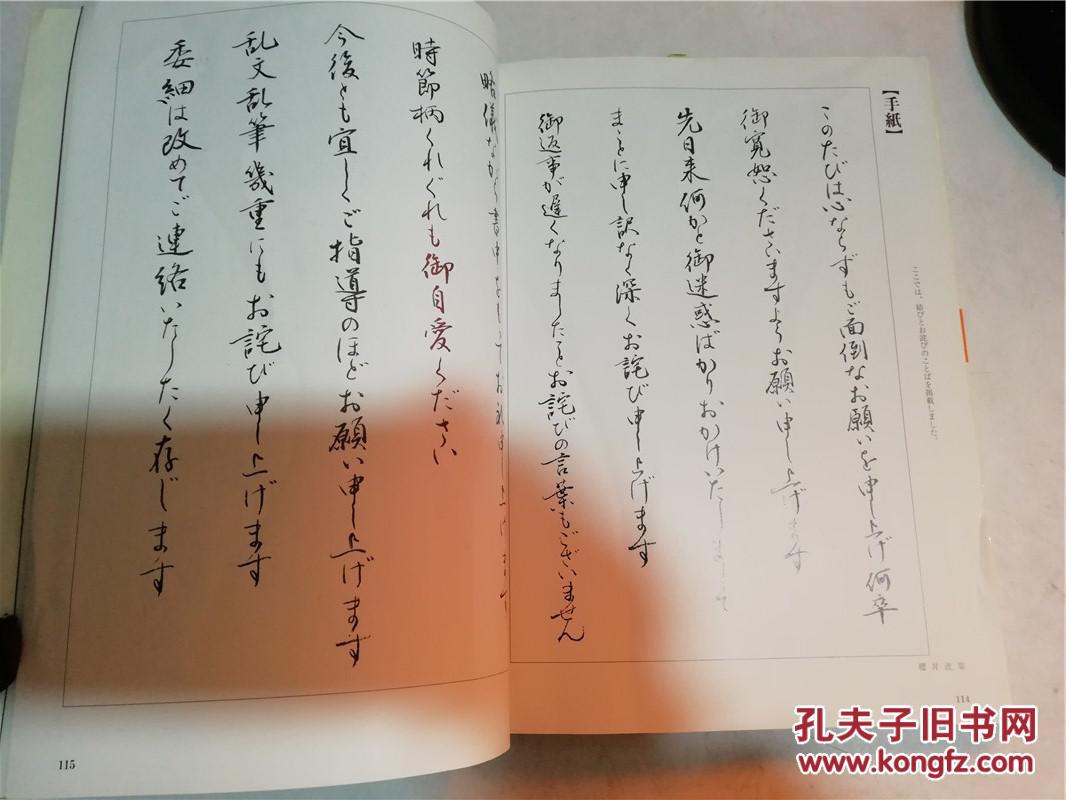 【手紙】
ここでは、結びとお詫びのことばを掲載しました。
このたびは心ならずもご面倒なお願いを申し上げ何卒
御寛恕くださいますようお願い申し上げます
先日来何かと御迷惑ばかりおかけいたしまして
まことに申し訳なく深くお詫び申し上げます
御返事が遅くなりましたことお詫びの言葉もございません
114
略儀ながら書中をもってお礼申し上げます
時節柄くれぐれも御自愛ください
今後とも宜しくご指導のほどお願い申し上げます
乱文乱筆幾重にもお詫び申し上げます
委細は改めてご連絡いたしたく存じます
115
孔夫子旧书网
www.kongfz.com